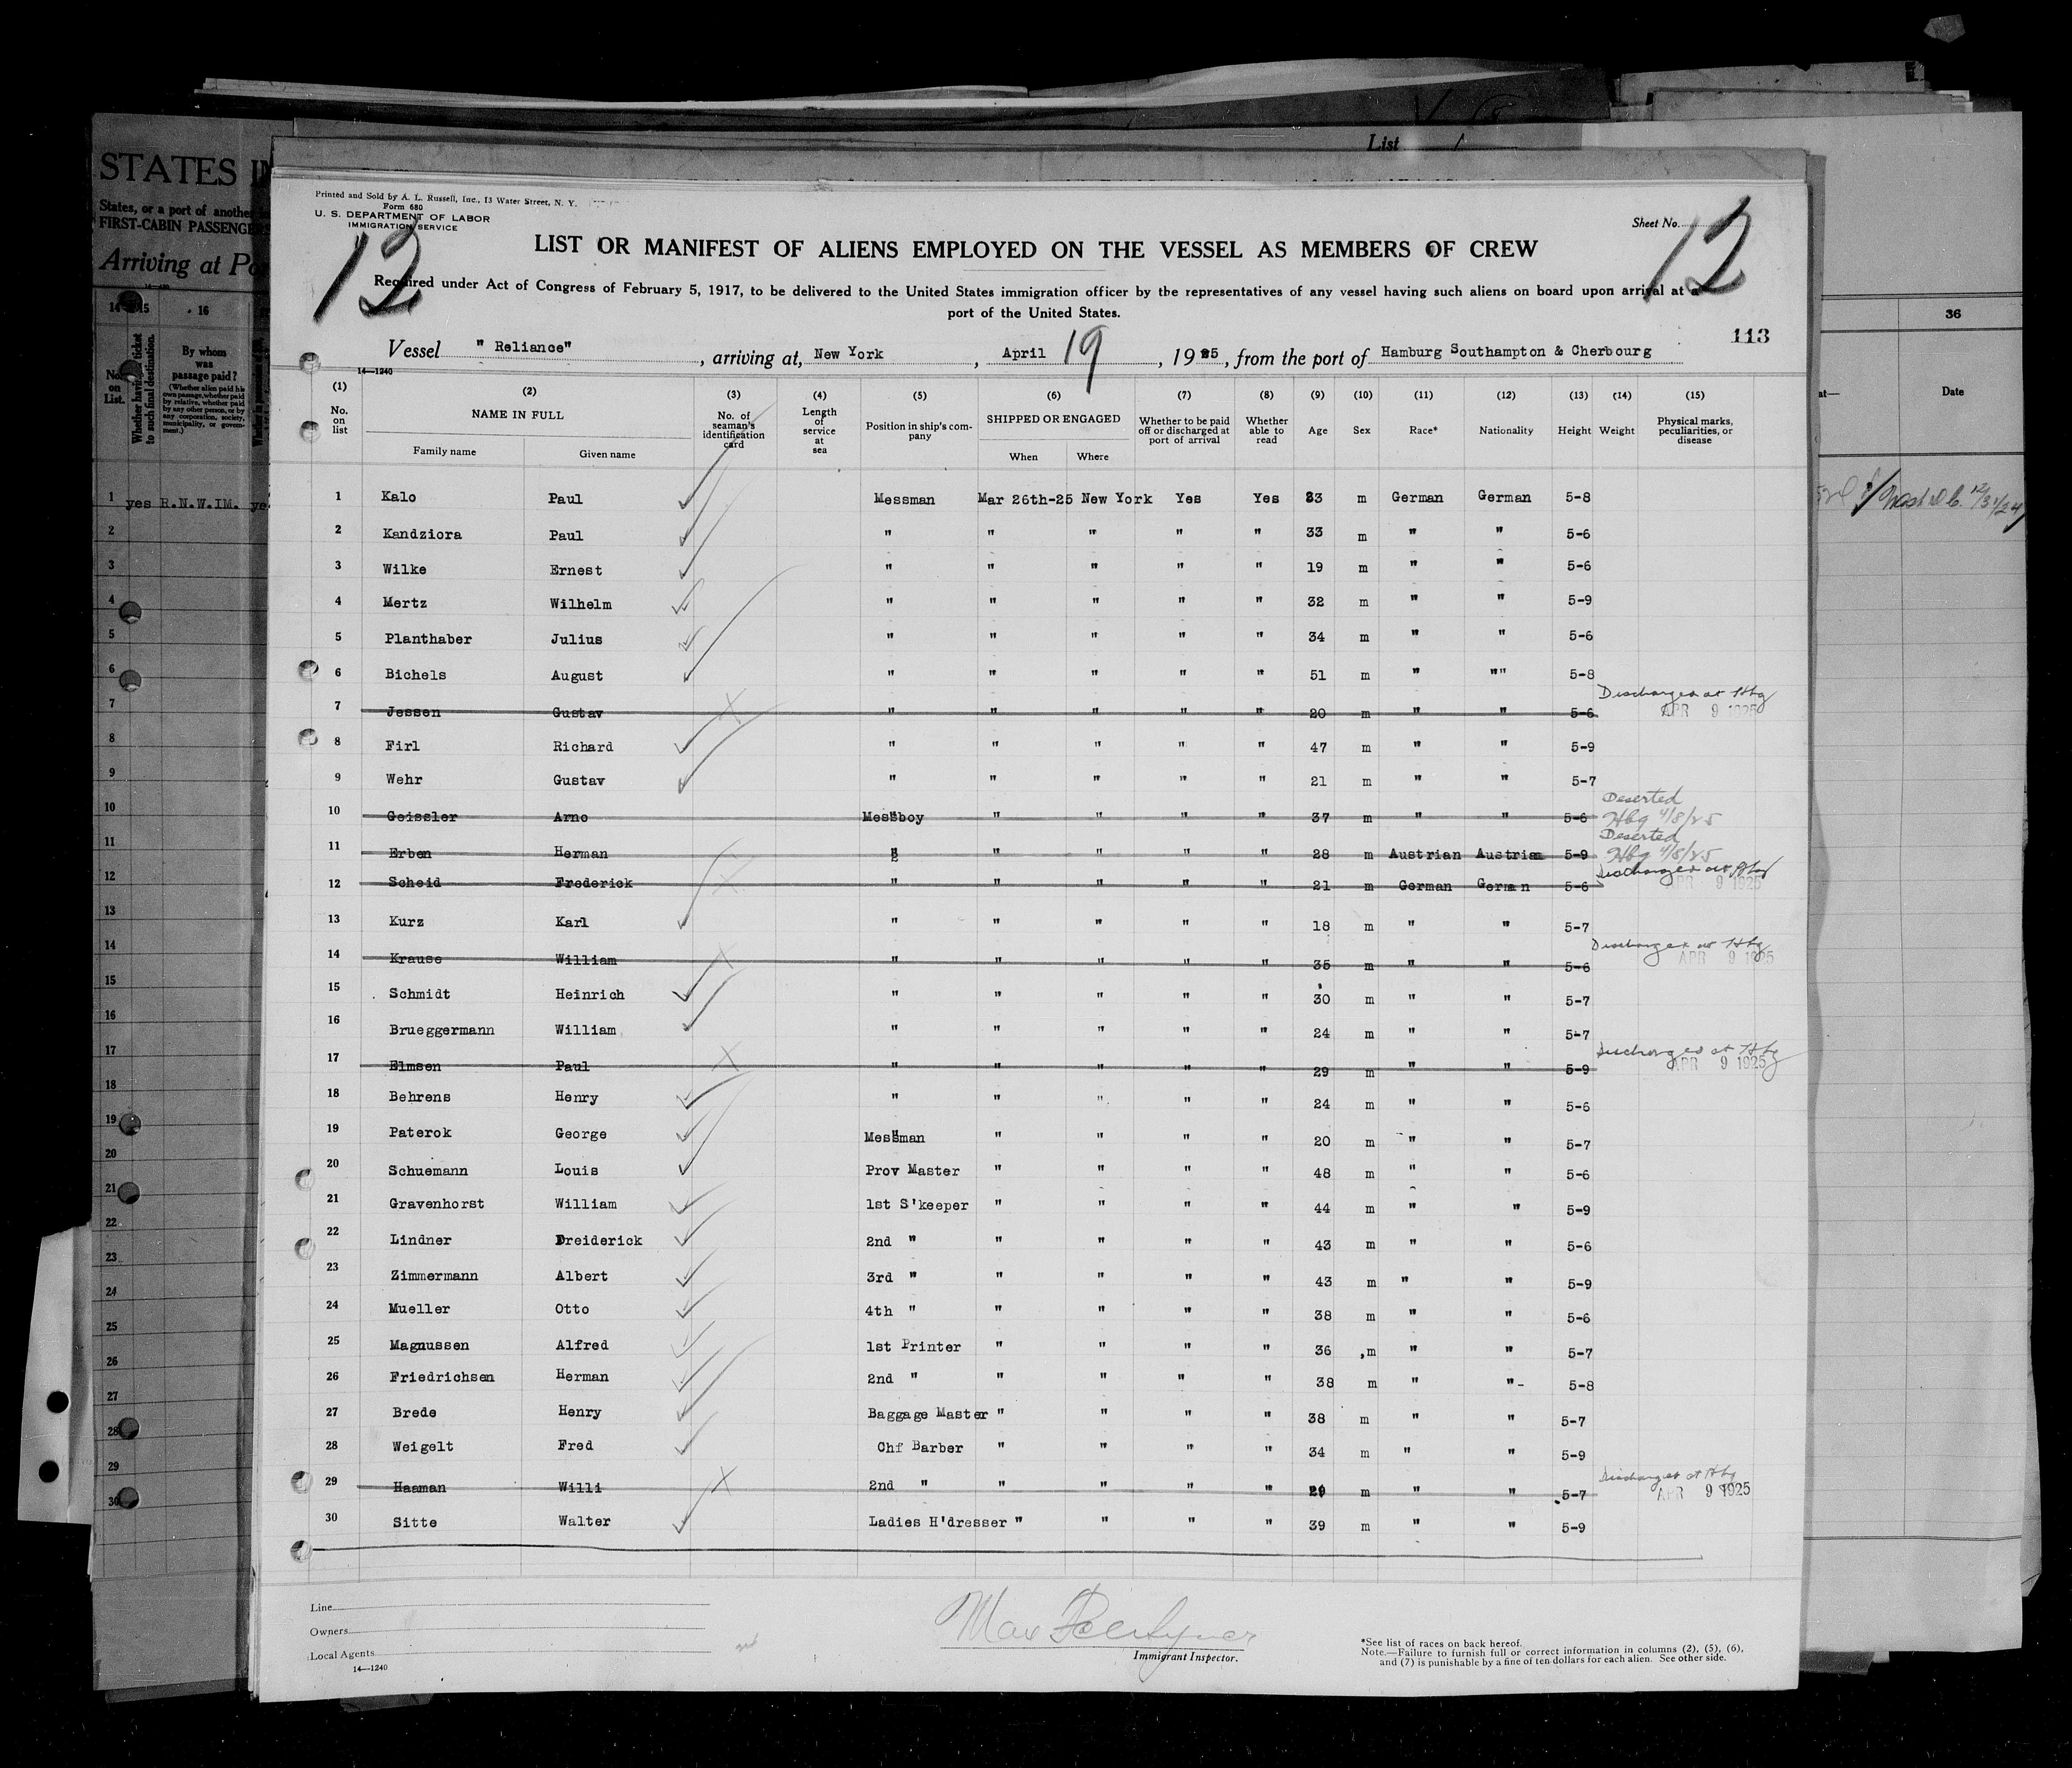 STATES IN
States, or a port of another
FIRST-CABIN PASSENGE
Arriving at Po
14 15 16
No. on List.
Whether having ticket to such final destination.
By whom was passage paid?
(Whether alien paid his own passage, whether paid by relative, whether paid by any other person, or by any corporation, society, municipality, or government.)
1 yes R.N.W.IM. ye
List
36
Date
Printed and Sold by A. L. Russell, Inc., 13 Water Street, N. Y.
Form 680
U. S. DEPARTMENT OF LABOR
IMMIGRATION SERVICE
12
Sheet No. 12
LIST OR MANIFEST OF ALIENS EMPLOYED ON THE VESSEL AS MEMBERS OF CREW
Required under Act of Congress of February 5, 1917, to be delivered to the United States immigration officer by the representatives of any vessel having such aliens on board upon arrival at a
port of the United States.
113
Vessel " Reliance" , arriving at, New York , April 19 , 1925, from the port of Hamburg Southampton & Cherbourg
14—1240
(1) (2) (3) (4) (5) (6) (7) (8) (9) (10) (11) (12) (13) (14) (15)
No. on list NAME IN FULL No. of seaman's identification card Length of service at sea Position in ship's company SHIPPED OR ENGAGED Whether to be paid off or discharged at port of arrival Whether able to read Age Sex Race* Nationality Height Weight Physical marks, peculiarities, or disease
Family name Given name When Where
1 Kalo Paul Messman Mar 26th-25 New York Yes Yes 33 m German German 5-8
2 Kandziora Paul " " " " " 33 m " " 5-6
3 Wilke Ernest " " " " " 19 m " " 5-6
4 Mertz Wilhelm " " " " " 32 m " " 5-9
5 Planthaber Julius " " " " " 34 m " " 5-6
6 Bichels August " " " " " 51 m " "" 5-8
7 Jessen Gustav " " " " " 20 m " " 5-6 Discharged at Hbg APR 9 1925
8 Firl Richard " " " " " 47 m " " 5-9
9 Wehr Gustav " " " " " 21 m " " 5-7
10 Geissler Arno Messboy " " " " 37 m " " 5-6 Deserted Hbg 4/8/25
11 Erben Herman " " " " " 28 m Austrian Austrian 5-9 Deserted Hbg 4/8/25
12 Scheid Frederick " " " " " 21 m German German 5-6 Discharged at Hbg APR 9 1925
13 Kurz Karl " " " " " 18 m " " 5-7
14 Krause William " " " " " 35 m " " 5-6 Discharged at Hbg APR 9 1925
15 Schmidt Heinrich " " " " " 30 m " " 5-7
16 Brueggermann William " " " " " 24 m " " 5-7
17 Elmsen Paul " " " " " 29 m " " 5-9 Discharged at Hbg APR 9 1925
18 Behrens Henry " " " " " 24 m " " 5-6
19 Paterok George Messman " " " " 20 m " " 5-7
20 Schuemann Louis Prov Master " " " " 48 m " " 5-6
21 Gravenhorst William 1st S'keeper " " " " 44 m " " 5-9
22 Lindner Dreiderick 2nd " " " " " 43 m " " 5-6
23 Zimmermann Albert 3rd " " " " " 43 m " " 5-9
24 Mueller Otto 4th " " " " " 38 m " " 5-6
25 Magnussen Alfred 1st Printer " " " " 36 m " " 5-7
26 Friedrichsen Herman 2nd " " " " " 38 m " " 5-8
27 Brede Henry Baggage Master " " " " 38 m " " 5-7
28 Weigelt Fred Chf Barber " " " " 34 m " " 5-9
29 Haaman Willi 2nd " " " " " 29 m " " 5-7 Discharged at Hbg APR 9 1925
30 Sitte Walter Ladies H'dresser " " " " 39 m " " 5-9
Line
Owners
Local Agents
14—1240
Max
Immigrant Inspector.
*See list of races on back hereof.
Note.—Failure to furnish full or correct information in columns (2), (5), (6),
and (7) is punishable by a fine of ten dollars for each alien. See other side.